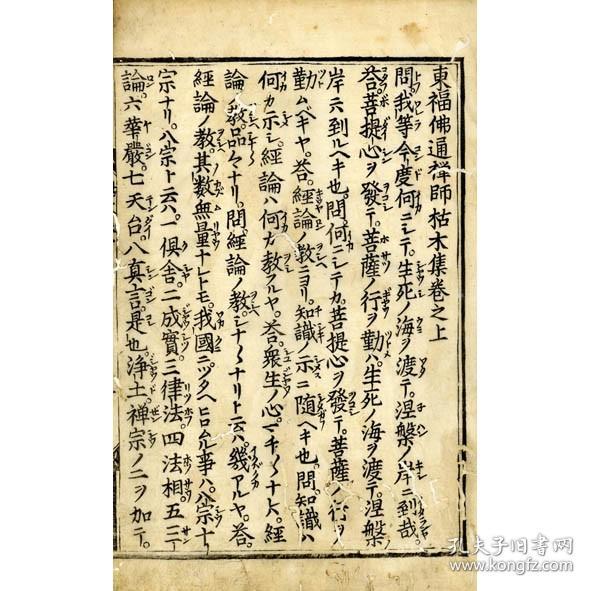 東福佛通禅師枯木集巻之上
問我等今度何ニシテ。生死ノ海ヲ渡テ。涅槃ノ岸ニ到哉。
答。菩提心ヲ發テ。菩薩ノ行ヲ勤ハ。生死ノ海ヲ渡テ。涅槃ノ
岸ニ到ルヘキ也。問。何ニシテカ。菩提心ヲ發テ。菩薩ノ行ヲ
勤ムベキヤ。答。經論ノ教ニヨリ。知識ノ示ニ隨ヘキ也。問。知識ハ
何カ示シ。經論ハ何カ教フルヤ。答。衆生ノ心。マチ〱ナレハ。經
論ノ教。品々ナリ。問。經論ノ教。シナ〱ナリト云ハ。幾アルヤ。答。
經論ノ教。其數無量ナレトモ。我國ニツタヘヒロム事ハ。八宗十
宗ナリ。八宗ト云ハ。一俱舎。二成實。三律法。四法相。五三
論。六華嚴。七天台。八真言。是也。浄土。禅宗ノ二ヲ加テ。
孔夫子旧书网
www.kongfz.com